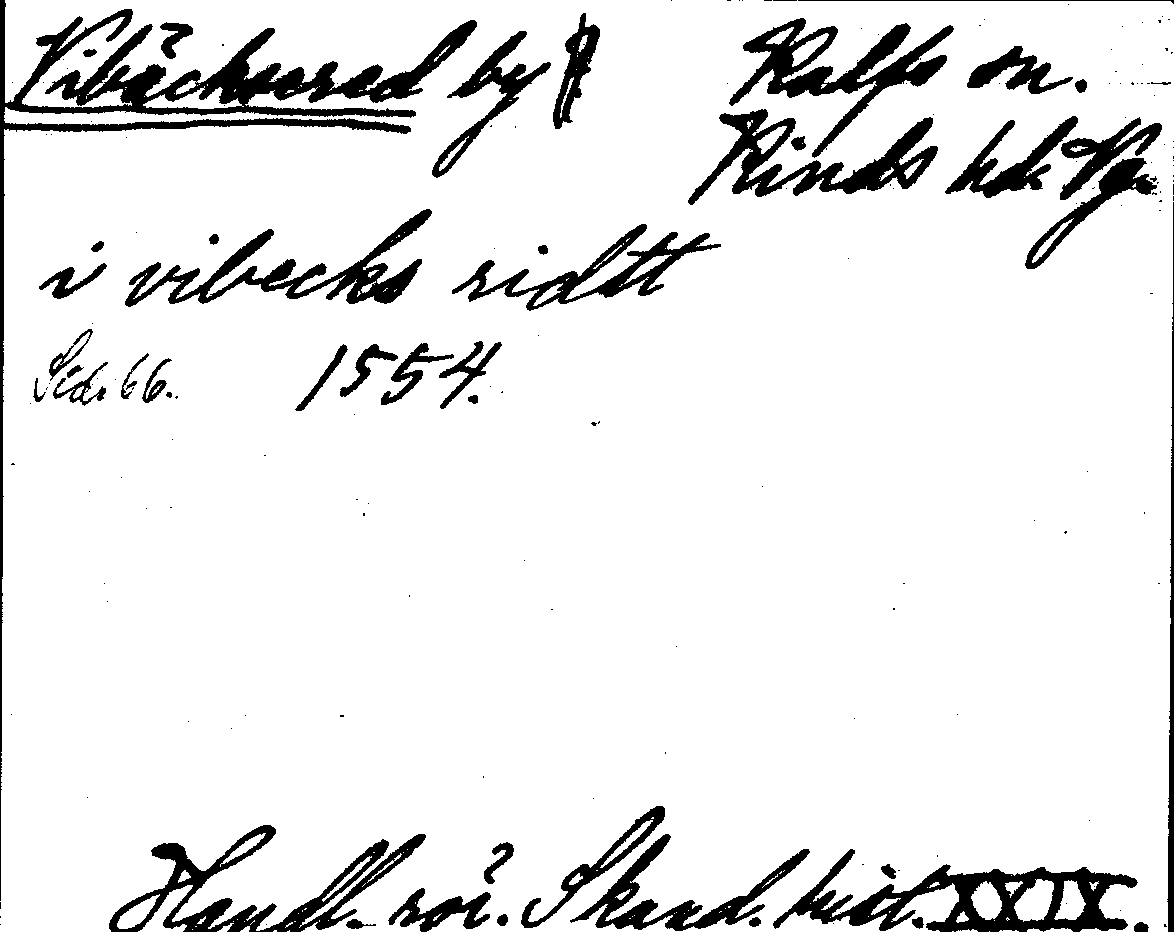 Vibäcksered by Kalfs sn.
Kinds hd. Vg.
i vibecks ridtt
Sid. 66. 1554.
Handl. rör. Skand. hist. XXIX.